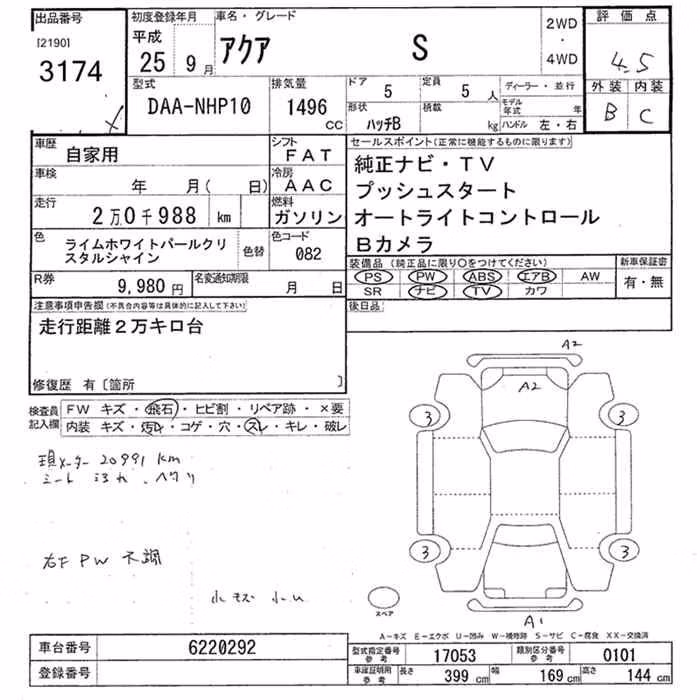 出品番号 初度登録年月 車名・グレード 2WD ・ 4WD 評価点
[2190]
3174
平成
25 9月
アクア S
4.5
外装 内装
B C
型式
DAA-NHP10
排気量
1496 CC
ドア 5
定員 5人
ディーラー・並行
形状 ハッチB
積載 kg
モデル年式 年
ハンドル 左・右
車歴 自家用
シフト FAT
車検 年 月( 日)
冷房 AAC
走行 2万0千988 km
燃料 ガソリン
色 ライムホワイトパールクリスタルシャイン
色替
色コード 082
R券 9,980円
名変通知期限 月 日
セールスポイント(正常に機能するものに限ります)
純正ナビ・TV
プッシュスタート
オートライトコントロール
Bカメラ
装備品(純正品に限り〇をつけてください) 新車保証書
PS PW ABS エアB AW 有・無
SR ナビ TV カワ
後日品
注意事項申告欄(不具合内容等は具体的に記入して下さい)
走行距離2万キロ台
修復歴 有〔箇所 〕
検査員記入欄
FW キズ・飛石・ヒビ割・リペア跡・×要
内装 キズ・汚れ・コゲ・穴・スレ・キレ・破レ
現メーター 20991 km
シート 汚れ、
右F PW 不調
小キズ
A2
A2
3 3
3 3
スペア
A1
A-キズ E-エクボ U-凹み W-補修跡 S-サビ C-腐食 XX-交換済
車台番号 6220292
登録番号
型式指定番号 参考 17053
類別区分番号 参考 0101
車庫証明用 参考 長さ 399 cm 幅 169 cm 高さ 144 cm